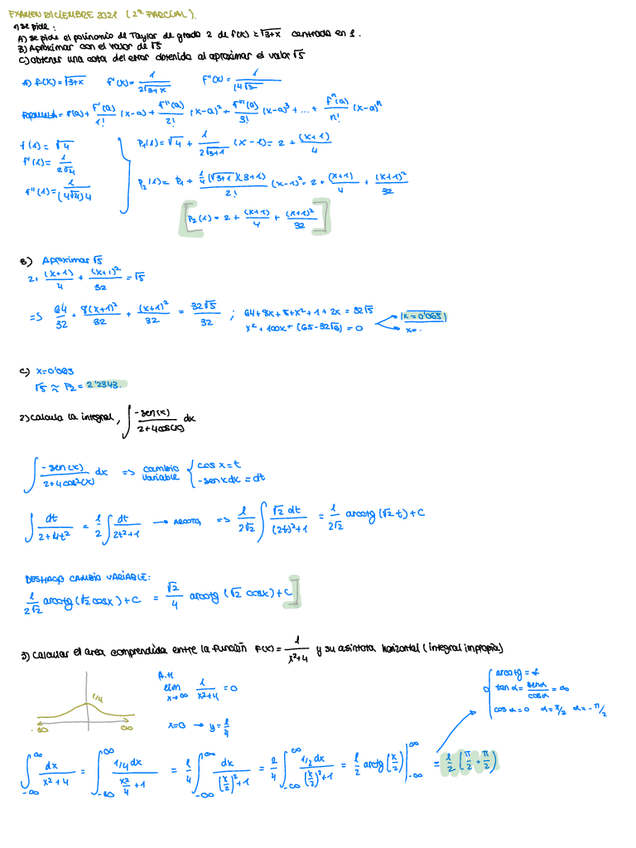 EXAMEN DICIEMBRE 2021 (2º PARCIAL).
1) se pide:
A) se pide el polinomio de Taylor de grado 2 de f(x) = √3+x centrada en 1.
B) Aproximar con el valor de √5
C) obtener una cota del error obtenida al aproximar el valor √5
A) f(x) = √3+x f'(x) = 1/2√3+x f''(x) = 1/(4√2
Formula = f(a) + f'(a)/1! (x-a) + f''(a)/2! (x-a)² + f'''(a)/3! (x-a)³ + ... + fⁿ(a)/n! (x-a)ⁿ
f(1) = √4
f'(1) = 1/2√4
f''(1) = 1/(4√4)4
P₁(1) = √4 + 1/2√3+1 (x-1) = 2 + (x+1)/4
P₂(1) = P₁ + 1/4 (√3+1)(3+1)/2! (x-1)² = 2 + (x+1)/4 + (x+1)²/32
[P₂(1) = 2 + (x+1)/4 + (x+1)²/32]
B) Aproximar √5
2+ (x+1)/4 + (x+1)²/32 = √5
=> 64/32 + 8(x+1)²/32 + (x+1)²/32 = 32√5/32 ; 64+8x+8+x²+1+2x = 32√5
x² + 100x + (65-32√5) = 0
x = 0'063
x = .
C) x = 0'063
√5 ≈ P₂ = 2'2343.
2) Calcula la integral, ∫ -sen(x)/2+4cos(x) dx
∫ -sen(x)/2+4cos²(x) dx => cambio variable { cos x = t
-sen x dx = dt
∫ dt/2+4t² = 1/2 ∫ dt/2t²+1 → arcotg => 1/2√2 ∫ √2 dt/(2t)²+1 = 1/2√2 arcotg (√2 t) + C
DESHAGO CAMBIO VARIABLE:
1/2√2 arcotg (√2 cosx) + C = √2/4 arcotg (√2 cosx) + C]
3) Calcular el area comprendida entre la función f(x) = 1/x²+4 y su asintota horizontal (integral impropia)
1/4
-∞ ∞
A.H
lim x→∞ 1/x²+4 = 0
x=0 → y = 1/4
tan α = senα/cosα = ∞
cos α = 0 α = π/2 α = -π/2
∫ dx/x²+4 = ∫ 1/4 dx/x²/4+1 = 1/4 ∫ dx/(x/2)²+1 = 2/4 ∫ 1/2 dx/(x/2)²+1 = 1/2 arctg (x/2) |∞ -∞ = 1/2 (π/2 + π/2)